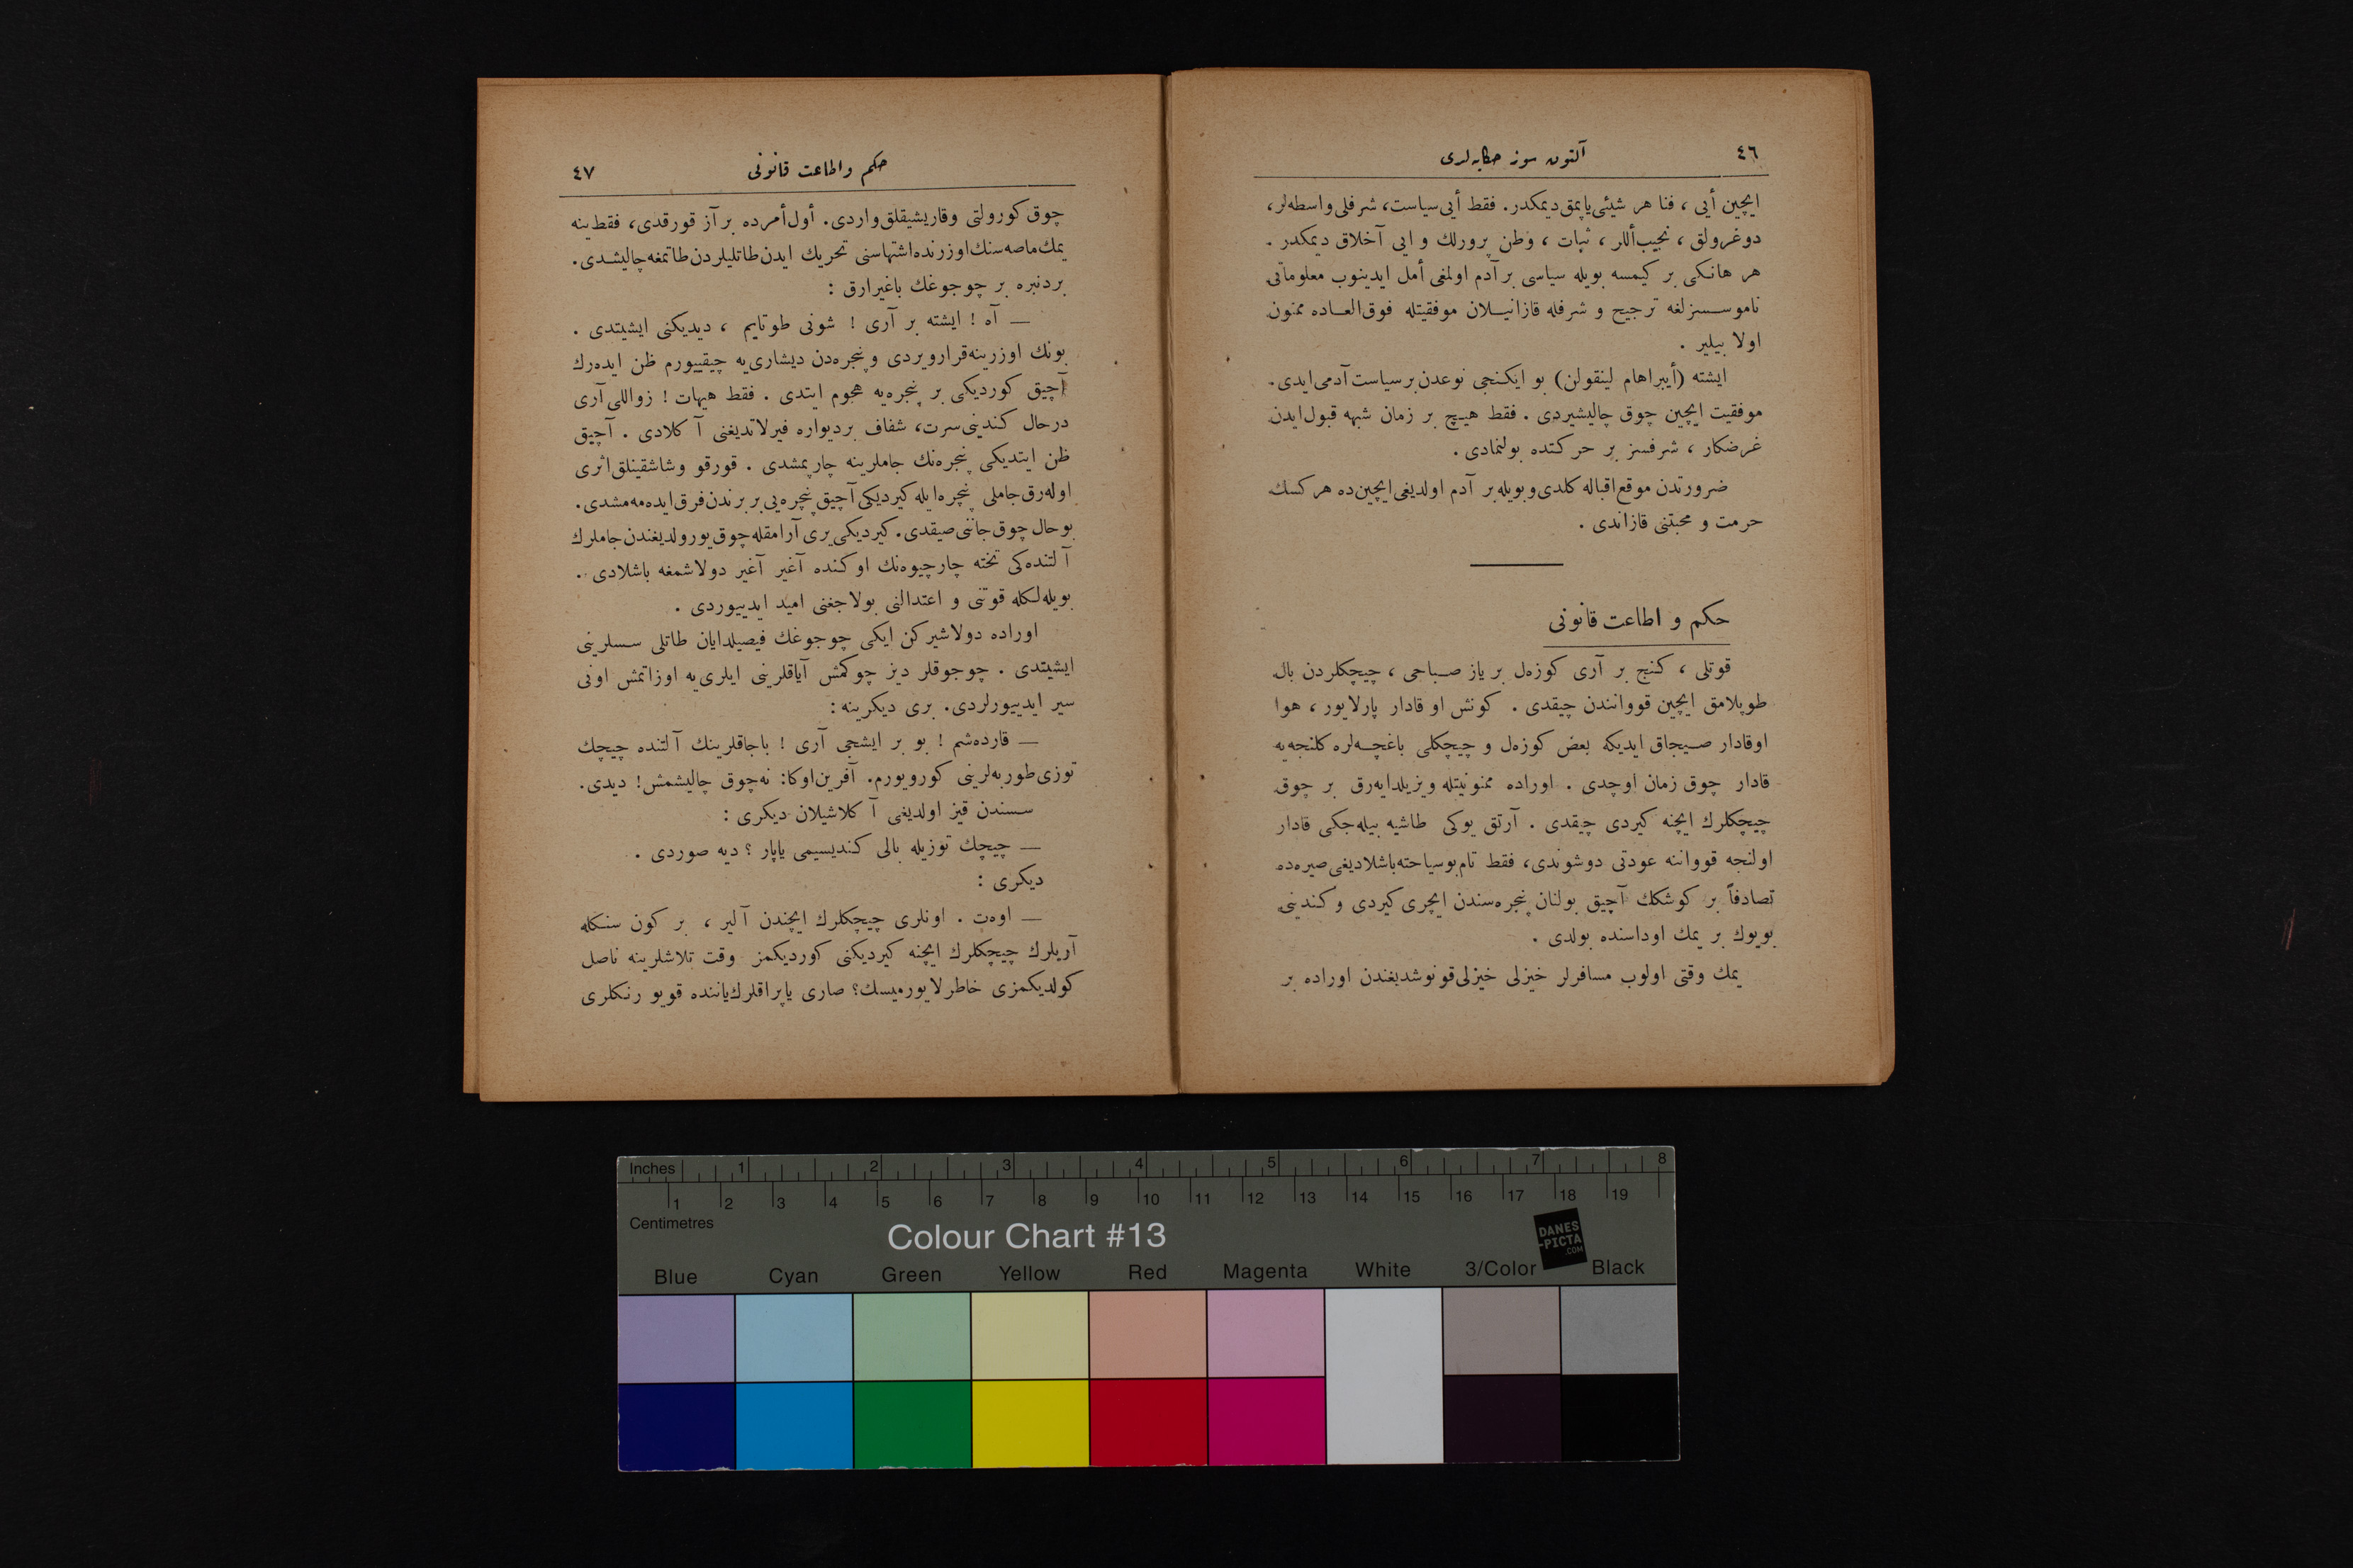 ٤٦
آلتون سوز حكایه‌لری
ایچین أیی ، فنا هر شیئی یاپمق دیمكدر. فقط أیی سیاست، شرفلی واسطه‌لر،
دوغرولق ، نجیب أللر ، ثبات ، وطن پرورلك و ایی آخلاق دیمكدر .
هر هانكی بر كیمسه بویله سیاسی بر آدم اولمغی أمل ایدینوب معلوماتی
ناموسسزلغه ترجیح و شرفله قازانیلان موفقیتله فوق‌العاده ممنون
اولا بیلیر .
ایشته (أیبراهام لینقولن) بو ایكنجی نوعدن بر سیاست آدمی ایدی.
موفقیت ایچین چوق چالیشیردی . فقط هیچ بر زمان شبهه قبول ایدن
غرضكار ، شرفسز بر حركتده بولنمادی .
ضرورتدن موقع اقباله كلدی و بویله بر آدم اولدیغی ایچین ده هر كسك
حرمت و محبتنی قازاندی .
حكم و اطاعت قانونی
قوتلی ، كنج بر آری كوزه‌ل بر یاز صباحی ، چیچكلردن بال
طوپلامق ایچین قوواننــدن چیقدی . كونش او قادار پارلایور ، هوا
اوقادار صیجاق ایدیكه بعض كوزه‌ل و چیچكلی باغچه‌لره كلنجه‌یه
قادار چوق زمان اوچدی . اوراده ممنونیتله ویزیلدایه‌رق بر چوق
چیچكلرك ایچنه كیردی چیقدی . آرتق یوكی طاشیه بیله‌جكی قادار
اولنجه قوواننه عودتی دوشوندی، فقط تام بو سیاحته باشلادیغی صیره‌ده
تصادفاً بر كوشكك آچیق بولنان پنجره‌سندن ایچری كیردی و كندینی
بویوك بر یمك اوداسنده بولدی .
یمك وقتی اولوب مسافرلر خیزلی خیزلی قونوشدیغندن اوراده بر
حكم و اطاعت قانونی
٤٧
چوق كورولتی وقاریشیقلق واردی. أول أمرده بر آز قورقدی، فقط ینه
یمك ماصه‌سنك اوزرنده اشتهاسنی تحریك ایدن طاتلیلردن طاتمغه چالیشدی.
بردنبره بر چوجوغك باغیرارق :
— آه ! ایشته بر آری ! شونی طوتایم ، دیدیكنی ایشیتدی .
بونك اوزرینه قرار ویردی و پنجره‌دن دیشاری‌یه چیقیيورم ظن ایده‌رك
آچیق كوردیكی بر پنجره‌یه هجوم ایتدی . فقط هیهات ! زواللی آری
درحال كندینی سرت، شفاف بردیواره فیرلاتدیغنی آكلادی . آچیق
ظن ایتدیكی پنجره‌نك جاملرینه چارپمشدی . قورقو وشاشقینلق اثری
اوله‌رق جاملی پنچره ایله كیردیكی آچیق پنچره‌یی بر برندن فرق ایده‌مه‌مشدی.
بو حال چوق جاننی صیقدی. كیردیكی یری آرامقله چوق یورولدیغندن جاملرك
آلتنده‌كی تخته چارچیوه‌نك اوكنده آغیر آغیر دولاشمغه باشلادی .
بویله‌لكله قوتنی و اعتدالنی بولاجغنی امید ایدییوردی .
اوراده دولاشیركن ایكی چوجوغك فیصیلدایان طاتلی سسلرینی
ایشیتدی . چوجوقلر دیز چوكمش آیاقلرینی ایلری‌یه اوزاتمش اونی
سیر ایدییورلردی. بری دیكرینه :
— قارده‌شم ! بو بر ایشجی آری ! باجاقلرینك آلتنده چیچك
توزی طوربه‌لرینی كورویورم. آفرین اوكا: نه چوق چالیشمش! دیدی.
سسندن قیز اولدیغی آكلاشیلان دیكری :
— چیچك توزیله بالی كندیسیمی یاپار ؟ دیه صوردی .
دیكری :
— اوه‌ت . اونلری چیچكلرك ایچندن آلیر ، بر كون سنكله
آریلرك چیچكلرك ایچنه كیردیكنی كوردیكمز وقت تلاشلرینه ناصل
كولدیكمزی خاطرلایورمیسك؟ صاری یاپراقلرك یاننده قویو رنكلری
Inches 1 2 3 4 5 6 7 8
1 2 3 4 5 6 7 8 9 10 11 12 13 14 15 16 17 18 19
Centimetres
Colour Chart #13
DANES
-PICTA
.COM
Blue Cyan Green Yellow Red Magenta White 3/Color Black